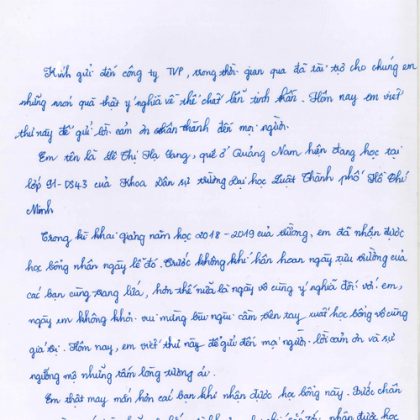 Kính gửi đến công ty TVP, trong thời gian qua đã tài trợ cho chúng em
những món quà thật ý nghĩa về thể chất lẫn tinh thần. Hôm nay em viết
thư này để gửi lời cảm ơn chân thành đến mọi người.
Em tên là Hồ Thị Hạ Vang, quê ở Quảng Nam hiện đang học tại
lớp 91-DS43 của Khoa Dân sự trường Đại học Luật Thành phố Hồ Chí
Minh
Trong kì khai giảng năm học 2018-2019 của trường, em đã nhận được
học bổng nhân ngày lễ đó. Trước không khí hân hoan ngày tựu trường của
các bạn cùng trang lứa, hơn thế nữa là ngày vô cùng ý nghĩa đối với em,
ngày em không khỏi vui mừng bùi ngùi cầm trên tay suất học bổng vô cùng
giá trị. Hôm nay, em viết thư này để gửi đến mọi người lời cảm ơn và sự
ngưỡng mộ những tấm lòng tương ái.
Em thật may mắn hơn các bạn khi nhận được học bổng này. Trước chân
nhận được học